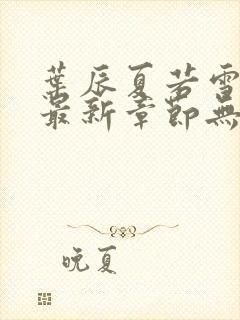 葉辰夏若雪
最新章節無
晚夏